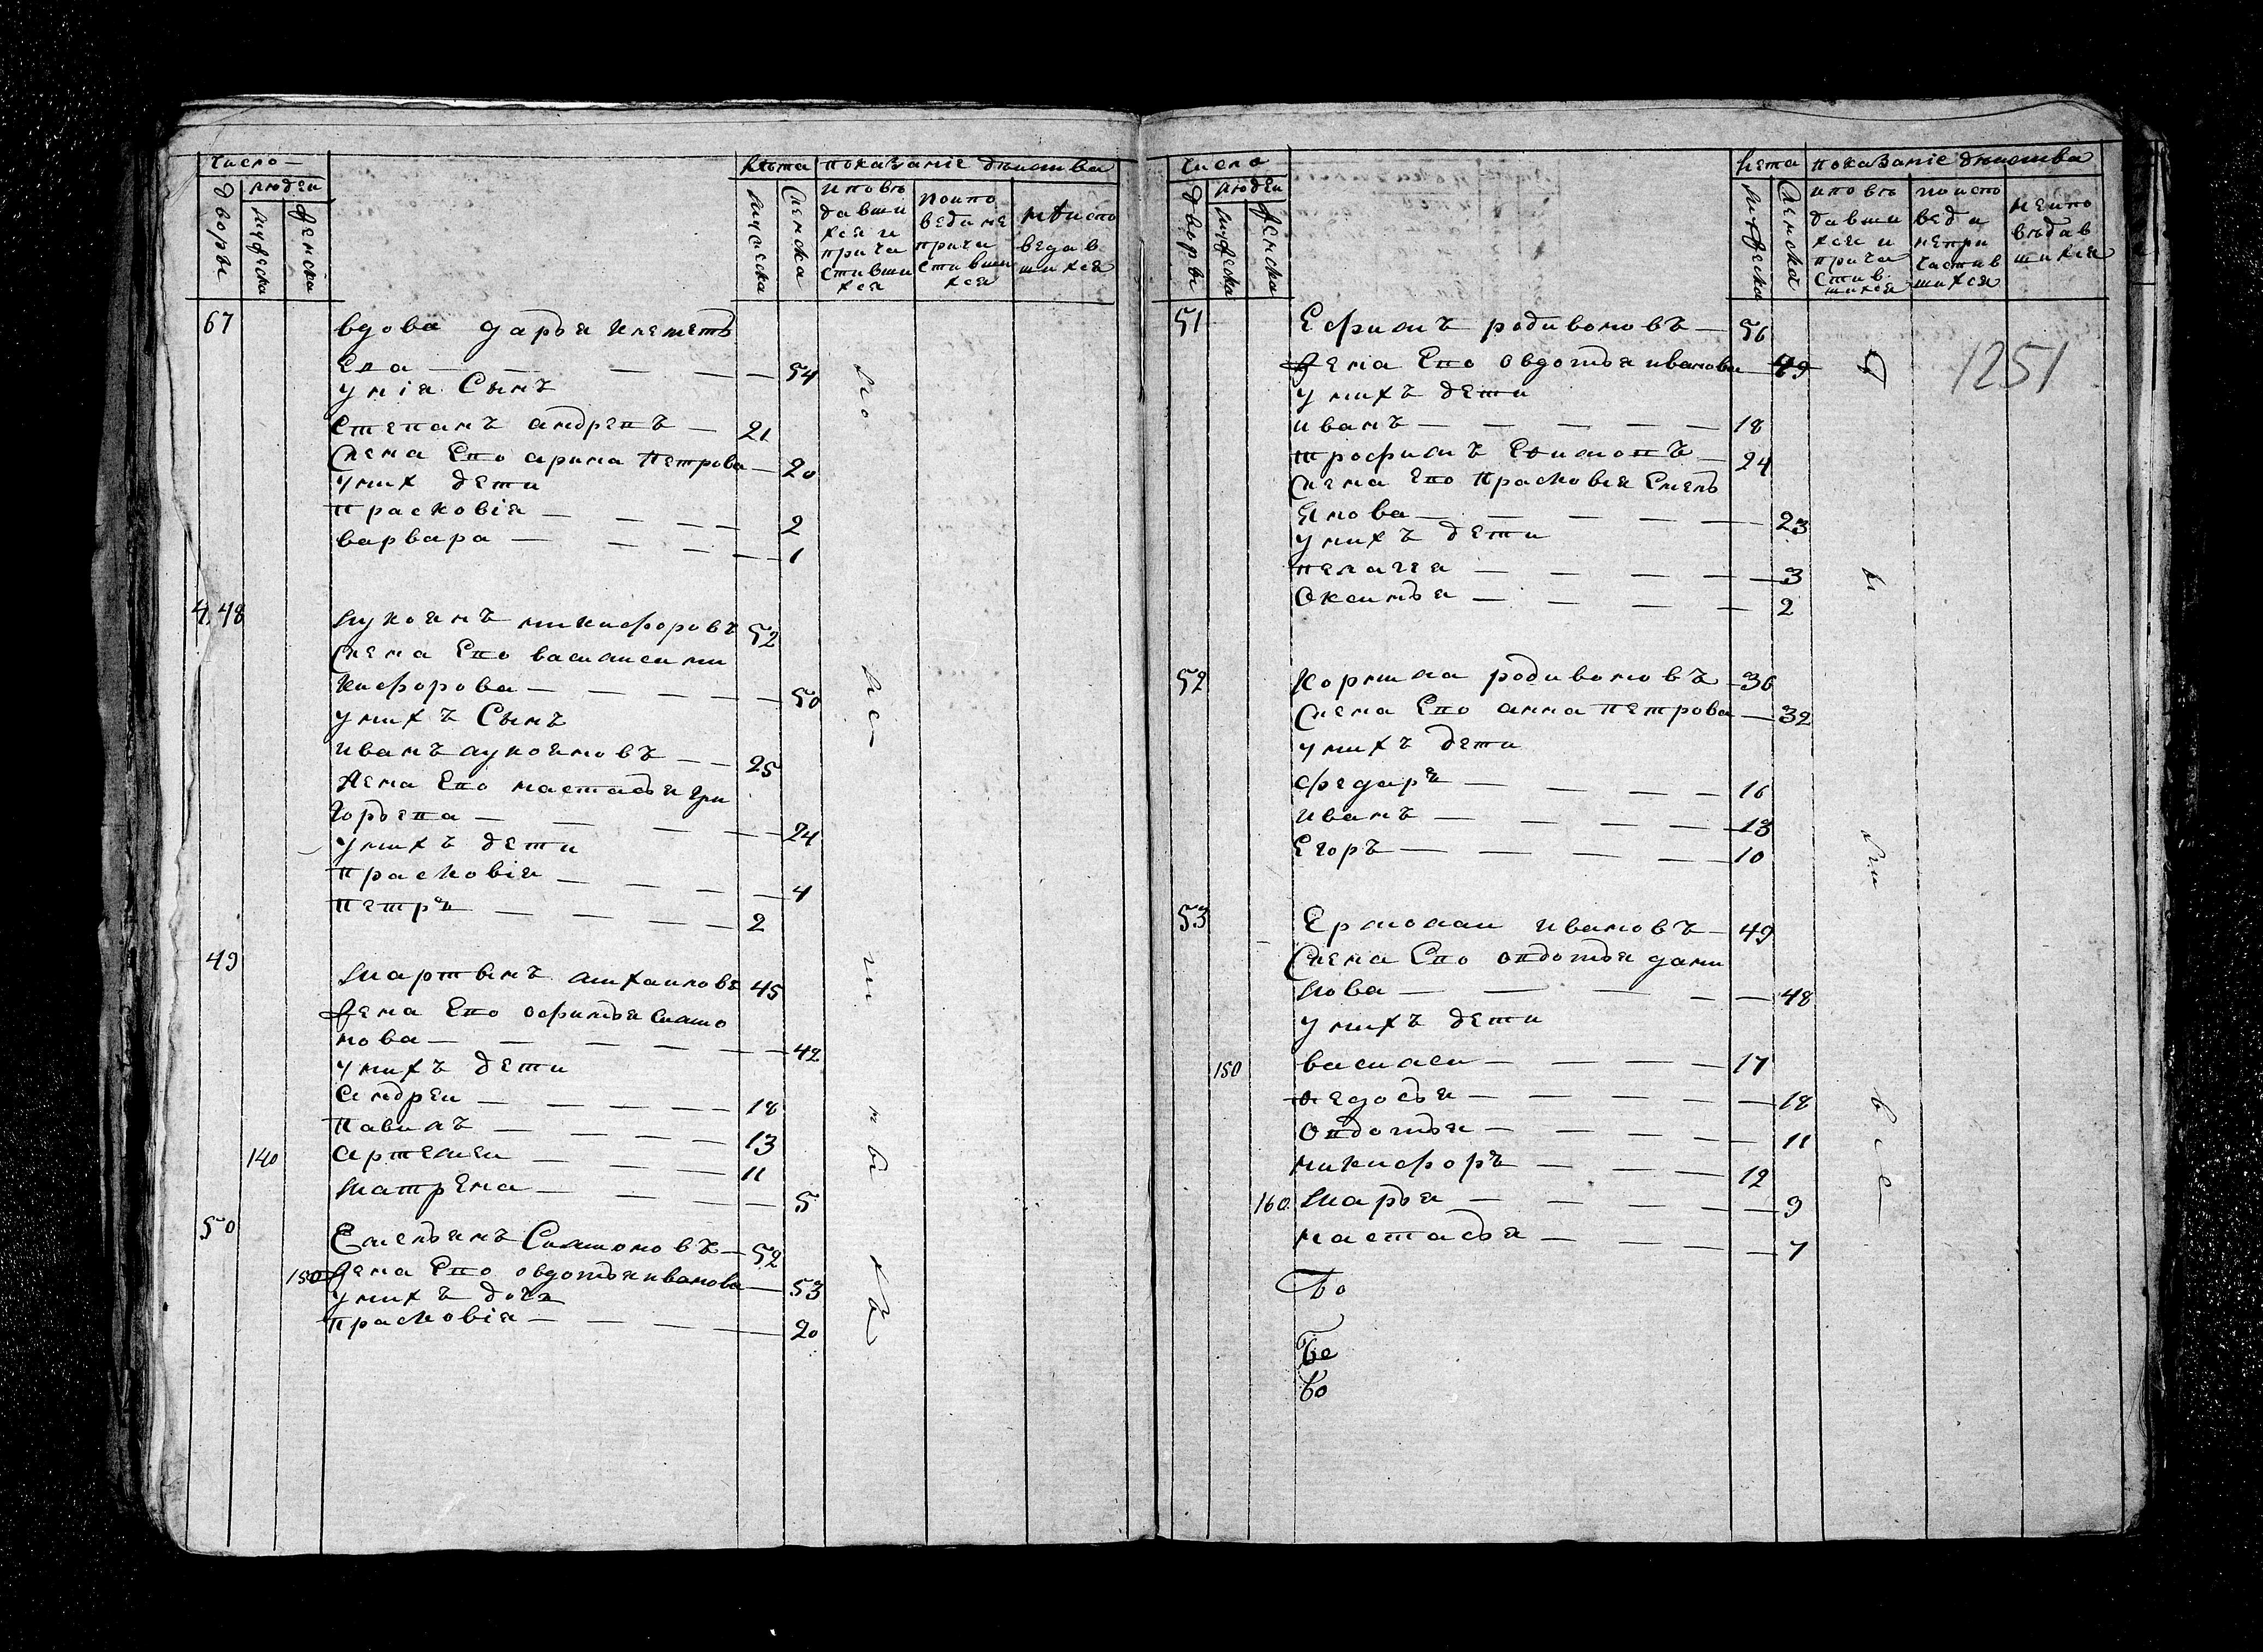 число —
дворы
людеи
мужеска
женска
лѣта
мужеска
женска
показаніе дѣиства
исповѣ
давши
хся и
прича
стивши
хся
поиспо
веди не
прича
стивши
хся
неиспо
ведав
шихся
67 вдова дарья клеметь
ева — — — — 54
у нія Сынъ
степанъ андревъ — 21
жена Ево арина петрова — 20
у них дети
прасковія — — — — 2
варвара — — — — 1
48 лукоянъ никифоровъ 52
жена Ево василиса ни
кифорова — — — — 50
у нихъ Сынъ
иванъ лукояновъ — — 25
жена Ево настасья гри
горьева — — — — 24
у нихъ дети
прасковія — — — — 4
петръ — — — — 2
49 мартынъ михаиловъ 45
жена Ево офимья Симо
нова — — — — 42
у нихъ дети
андреи — — — — 18
павилъ — — — — 13
140 артемеи — — — — 11
матрена — — — — 5
50 Емельянъ Симоновъ — 52
150 жена Ево овдотья иванова — 53
у нихъ дочь
прасковія — — — — 20
число
дворы
людеи
мужеска
женска
лета
мужеска
женска
показаніе дѣиства
исповѣ
давши
хся и
прича
стив
шихся
поиспо
веди
непри
частив
шихся
неиспо
вѣдав
шихся
1251
51 Ефимъ родивоновъ — 56
жена Ево овдотья иванова — 49
у нихъ дети
иванъ — — — — 18
трофимъ Ефимовъ — 24
жена Ево прасковія Емель
янова — — — — 23
у нихъ дети
пелагея — — — — 3
Оксинья — — — — 2
52 корнила родивоновъ — 36
жена Ево анна петрова — 32
у нихъ дети
федаръ — — — — 16
иванъ — — — — 13
Егоръ — — — — 10
53 Ермолаи ивановъ — 49
жена Ево овдотья дани
лова — — — — 48
у нихъ дети
150 василеи — — — — 17
ѳедосья — — — — 18
Овдотья — — — — 11
никифоръ — — — — 12
160 марья — — — — 9
настасья — — — — 7